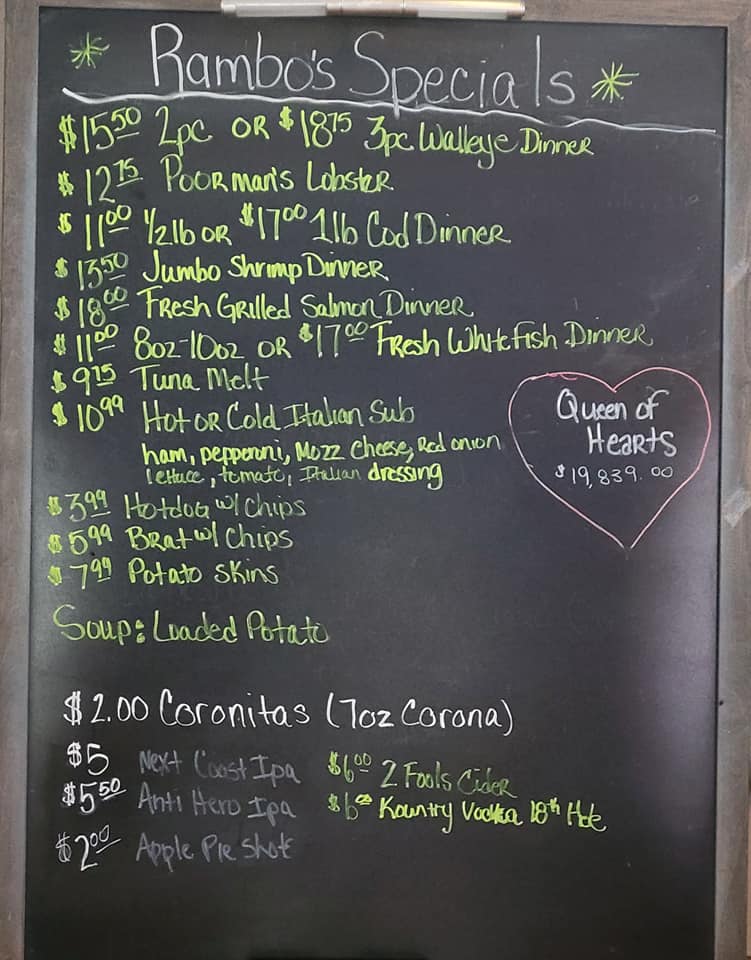 Rambo's Specials
$15.50 2pc OR $18.75 3pc Walleye Dinner
$12.75 Poorman's Lobster
$11.00 1/2lb OR $17.00 1lb Cod Dinner
$13.50 Jumbo Shrimp Dinner
$18.00 Fresh Grilled Salmon Dinner
$11.00 8oz-10oz OR $17.00 Fresh Whitefish Dinner
$9.75 Tuna Melt
$10.99 Hot OR Cold Italian Sub
ham, pepperoni, Mozz cheese, Red onion
lettuce, tomato, Italian dressing
Queen of
Hearts
$19,839.00
$3.99 Hotdog w/ Chips
$5.99 Brat w/ Chips
$7.99 Potato Skins
Soup: Loaded Potato
$2.00 Coronitas (7oz Corona)
$5 Next Coast Ipa
$5.50 Anti Hero Ipa
$2.00 Apple Pie Shot
$6.00 2 Fools Cider
$6.00 Kountry Vodka 18th Hole